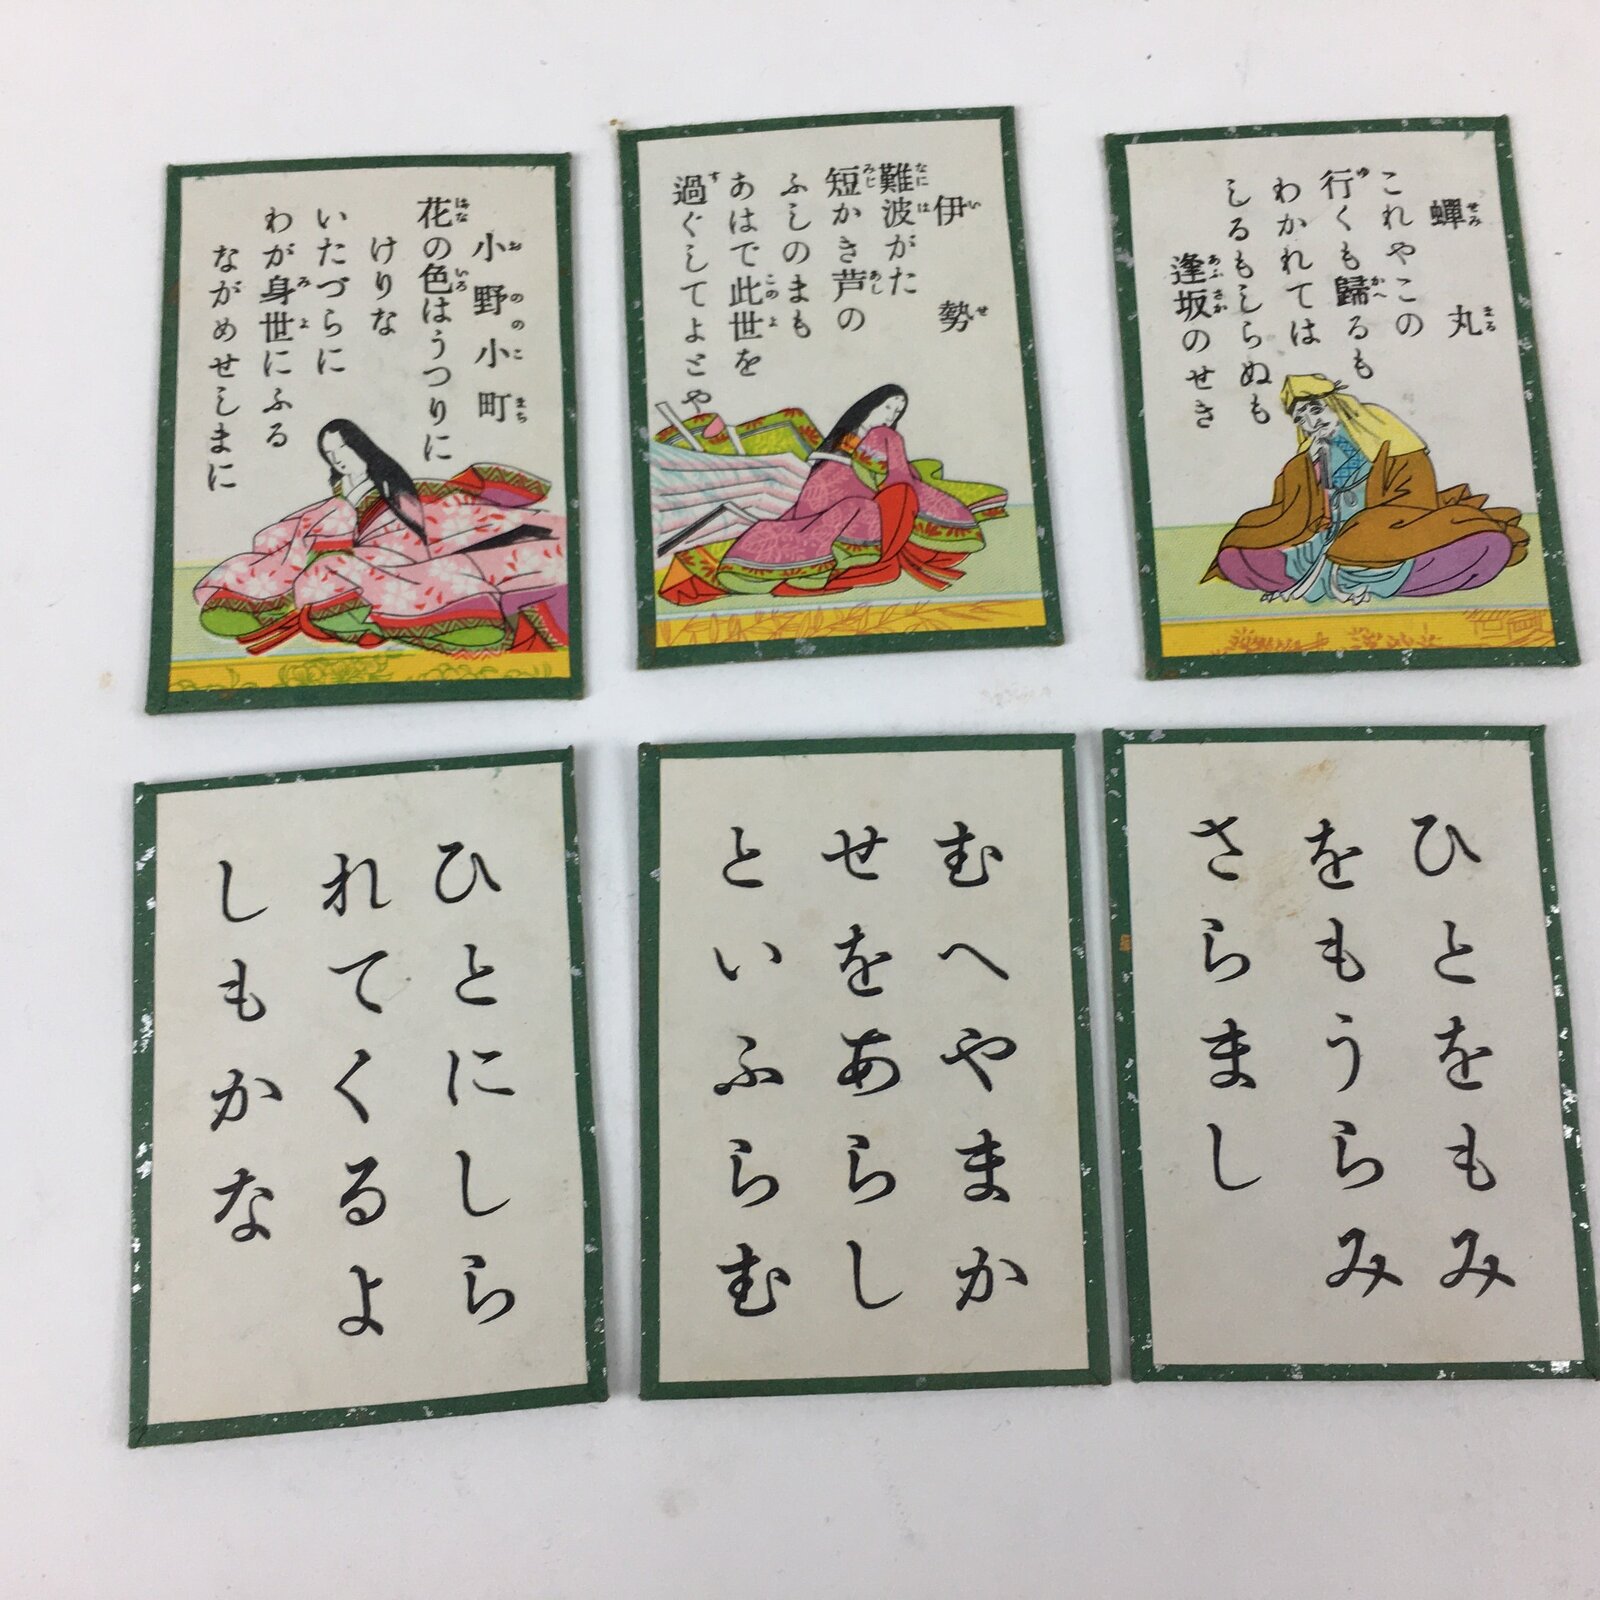 小野小町
花の色はうつりに
けりな
いたづらに
わが身世にふる
ながめせしまに
伊勢
難波がた
短かき芦の
ふしのまも
あはで此世を
過ぐしてよとや
蟬丸
これやこの
行くも歸るも
わかれては
しるもしらぬも
逢坂のせき
ひとにしら
れてくるよ
しもかな
むへやまか
せをあらし
といふらむ
ひとをもみ
をもうらみ
さらまし